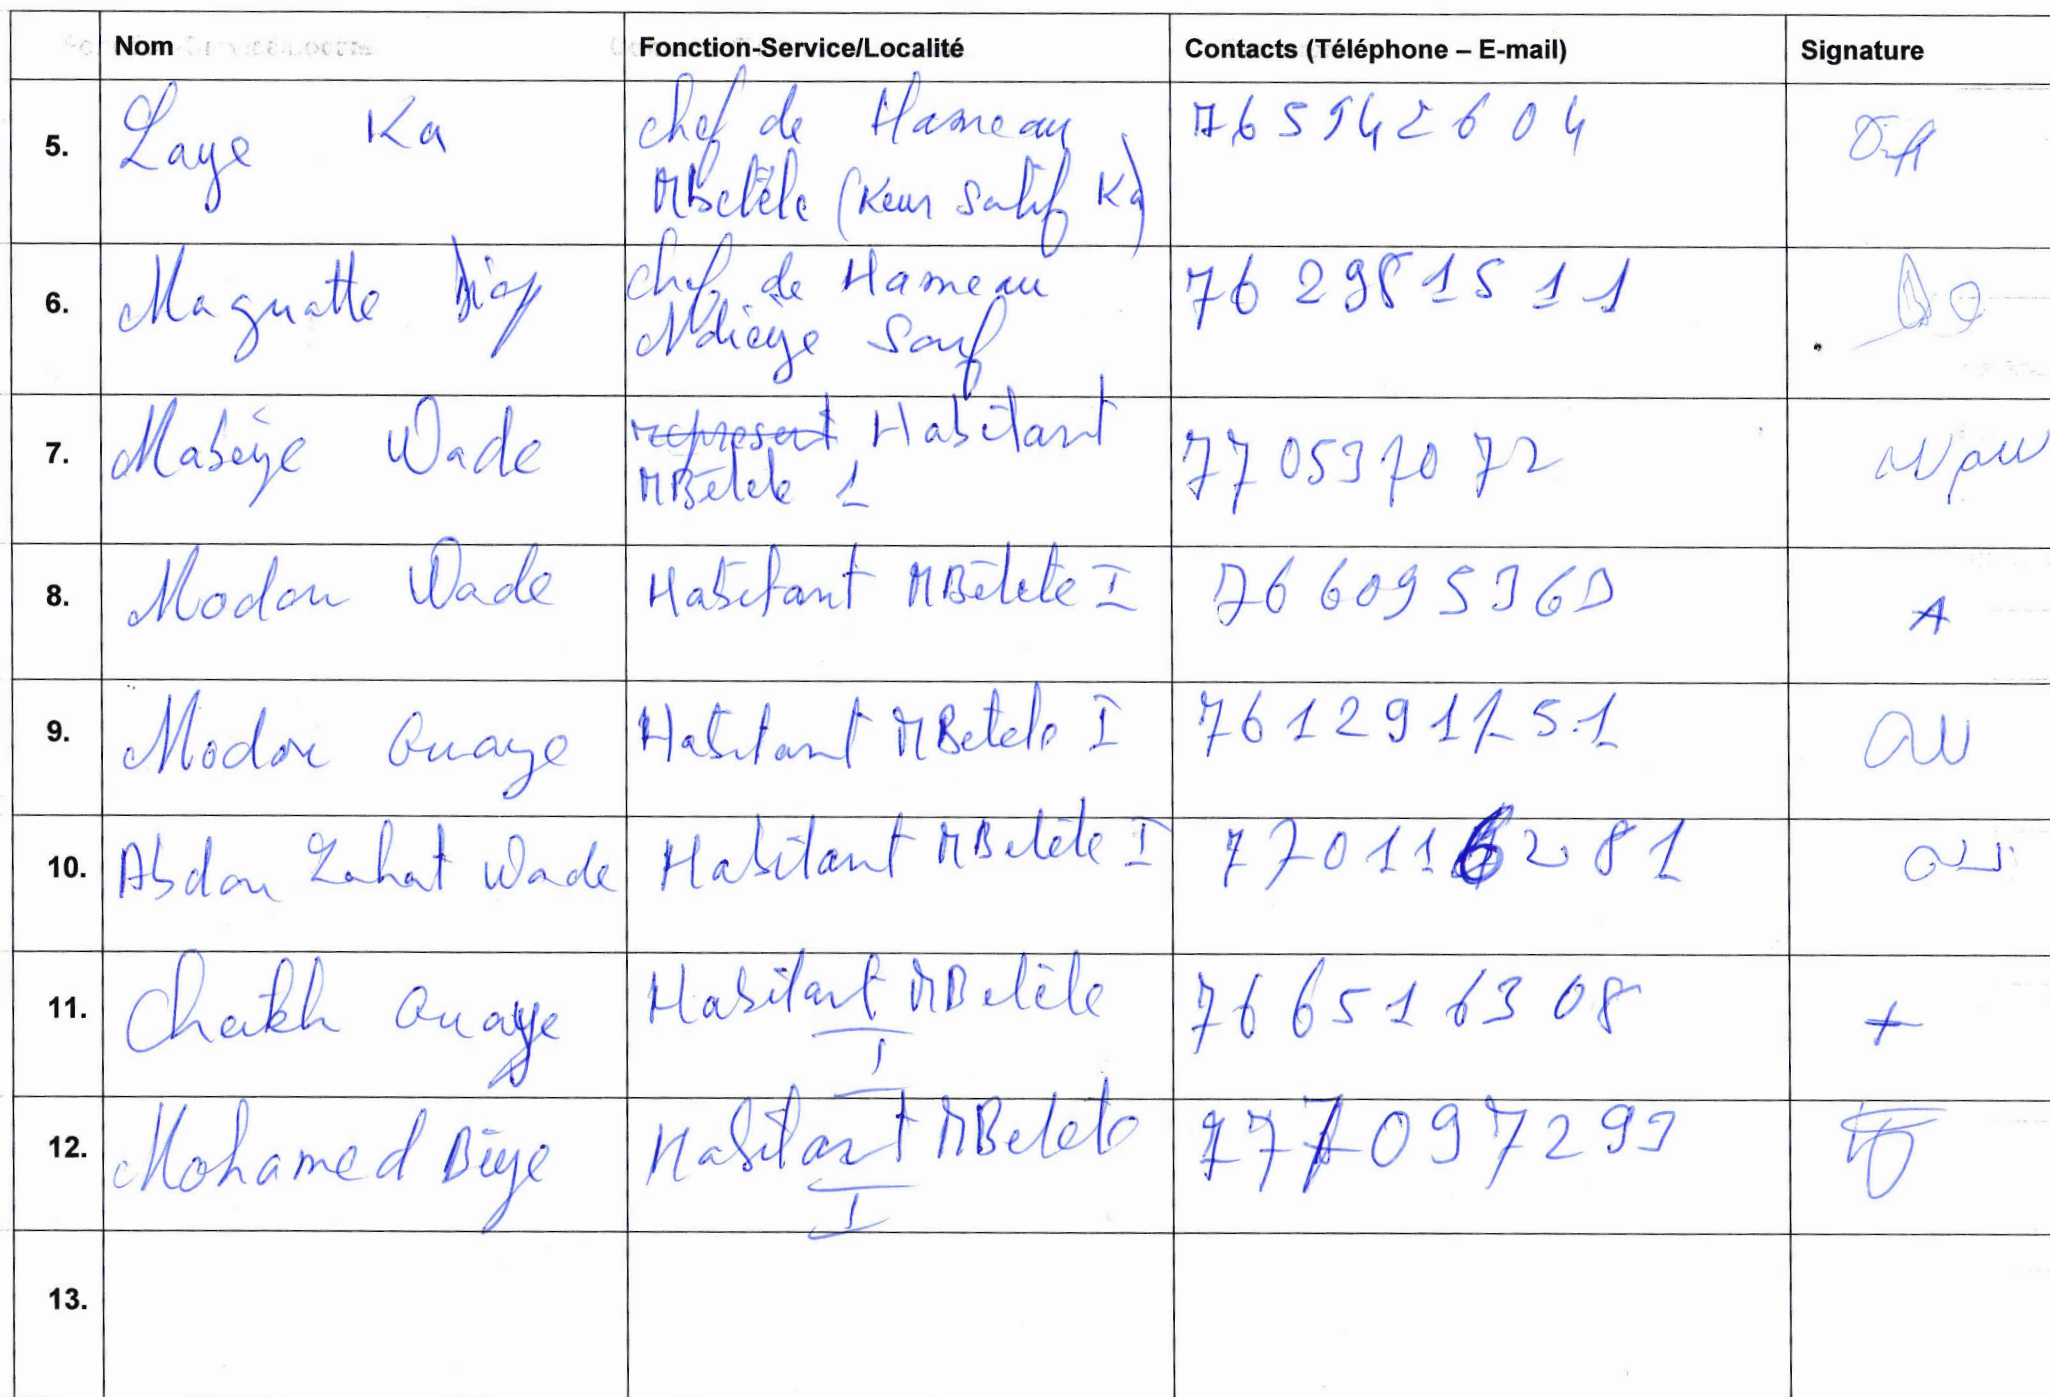 Nom Fonction-Service/Localité Contacts (Téléphone – E-mail) Signature
5. Laye Ka chef de Hameau 765942604
MBetète (Keur Salif Ka)
6. Maguatte Diop chef de Hameau 76 2981511
Ndièye Souf
7. Mabèye Wade represent Habitant 77 05370 72
MBétete 1
8. Modou Wade Habitant MBétete I 76 6095363
9. Modou Guaye Habitant MBetete I 761291751
10. Abdou Lahat Wade Habitant MBetete I 770116281
11. Cheikh Guaye Habitant MBetète 76 6516308
I
12. Mohamed Bèye Habitant MBetete 777097299
I
13.